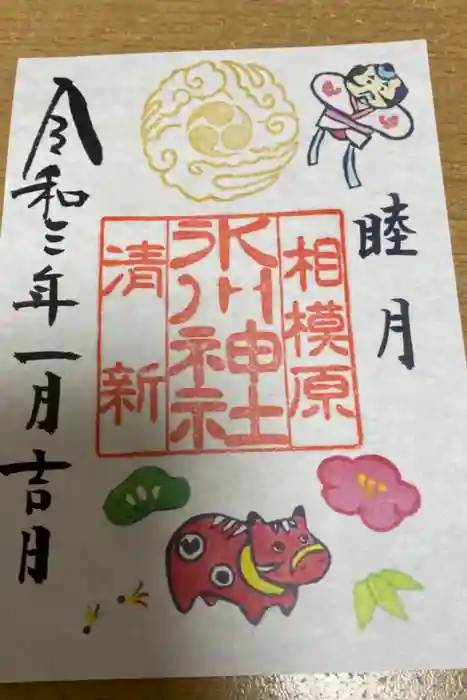 睦月
相模原
氷川神社
清新
令和三年一月吉月